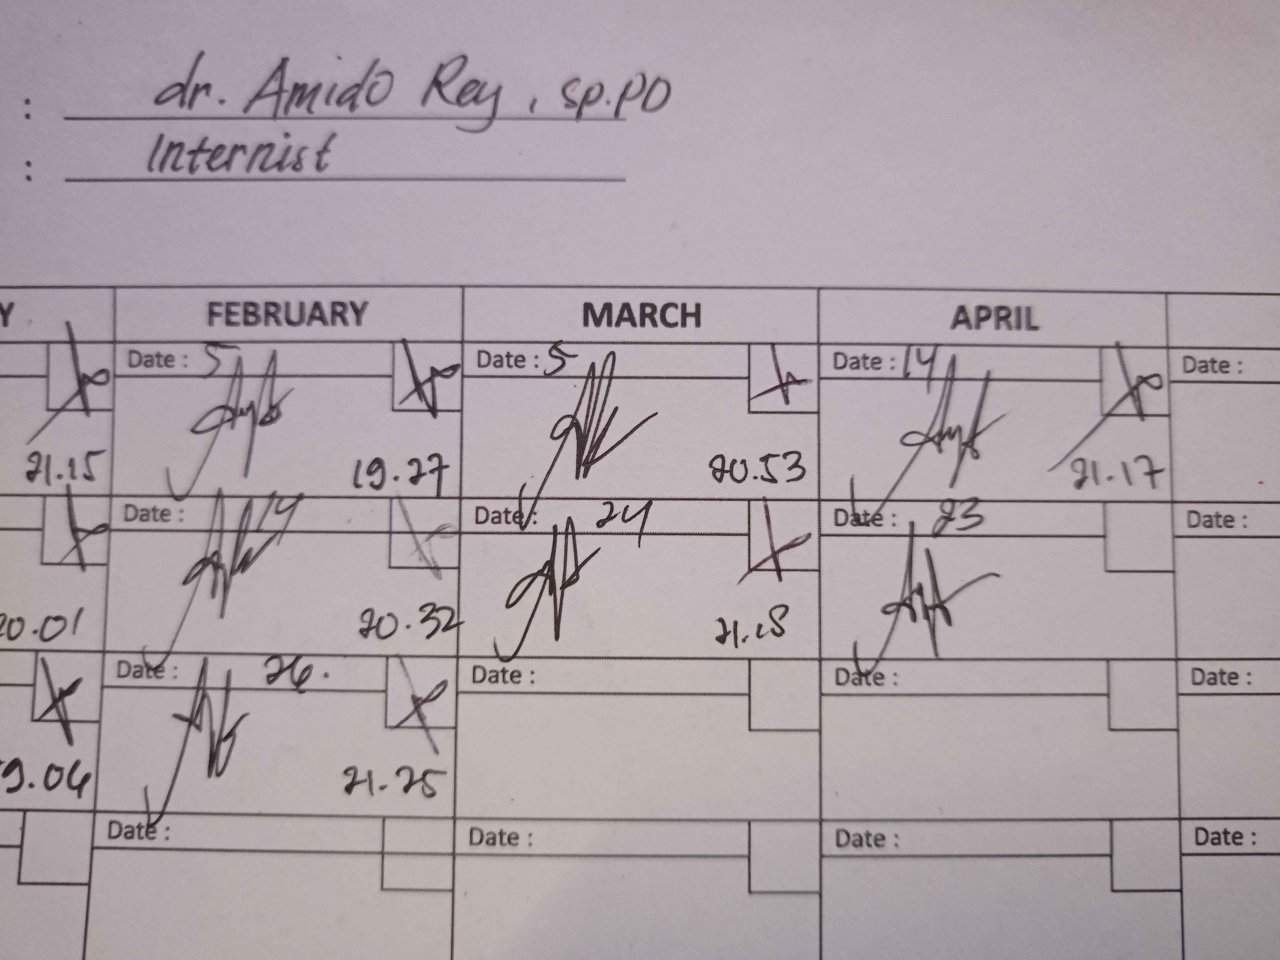 : dr. Amido Rey, sp.PD
: Internist
Y FEBRUARY MARCH APRIL
Date : 5 Date : 5 Date : 14 Date :
21.15 19.27 20.53 21.17
Date : 14 Date : 24 Date : 23 Date :
20.01 20.32 21.18
Date : 26. Date : Date : Date :
9.04 21.25
Date : Date : Date : Date :